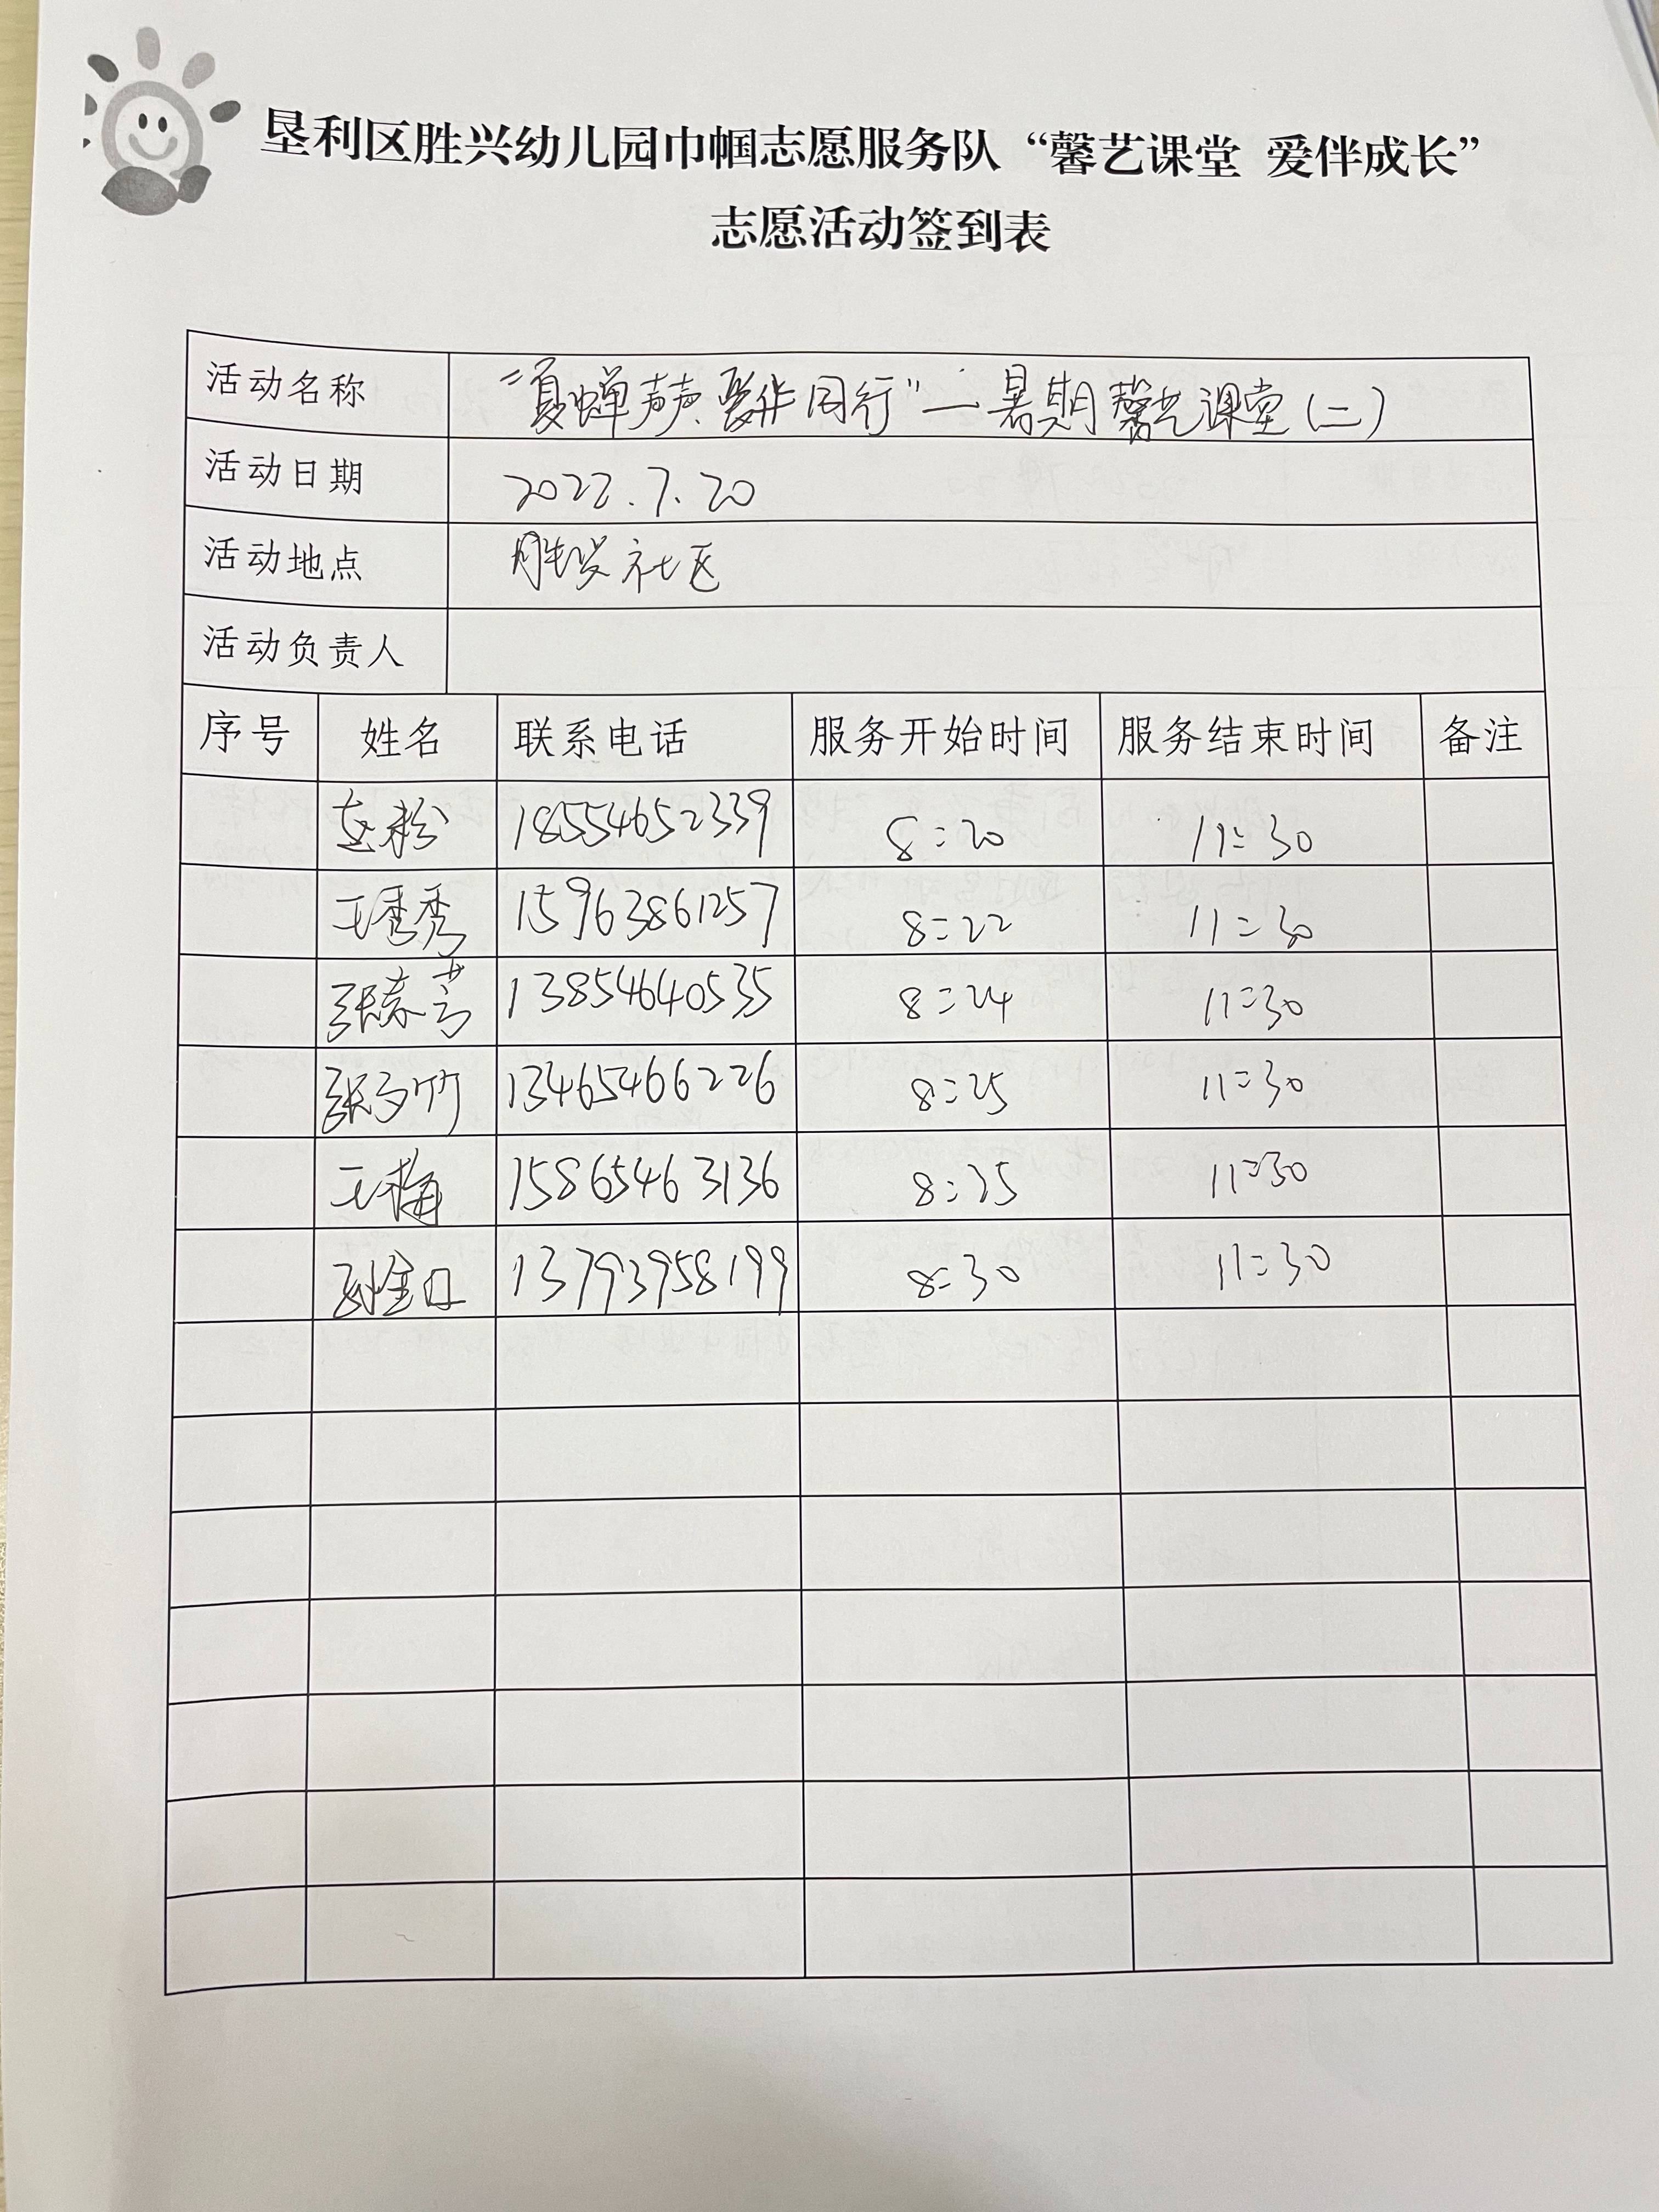 垦利区胜兴幼儿园巾帼志愿服务队“馨艺课堂 爱伴成长”
志愿活动签到表
活动名称 “夏蝉声声.爱伴同行”—暑期馨艺课堂(二)
活动日期 2022.7.20
活动地点 胜兴社区
活动负责人
序号 姓名 联系电话 服务开始时间 服务结束时间 备注
18554652339 8:20 11:30
王秀秀 15963861257 8:22 11:30
张春芳 13854640535 8:24 11:30
13465466226 8:25 11:30
王梅 15865463136 8:25 11:30
13793958199 8:30 11:30